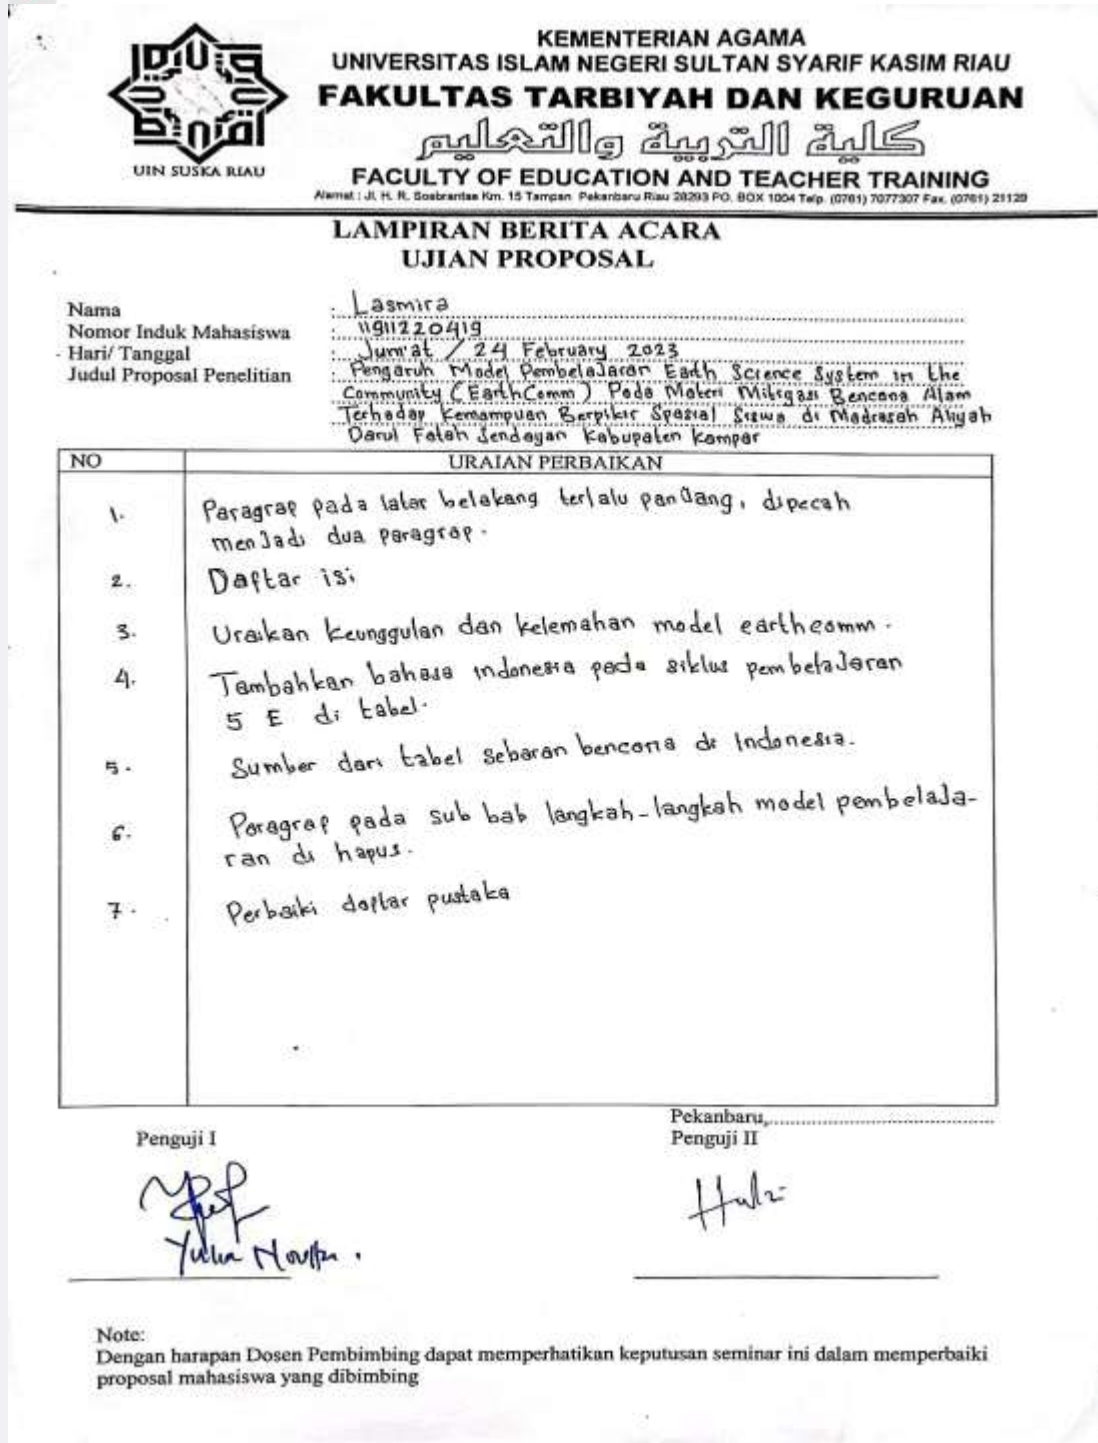 UIN SUSKA RIAU
KEMENTERIAN AGAMA
UNIVERSITAS ISLAM NEGERI SULTAN SYARIF KASIM RIAU
FAKULTAS TARBIYAH DAN KEGURUAN
كلية التربية والتعليم
FACULTY OF EDUCATION AND TEACHER TRAINING
Alamat : Jl. H. R. Soebrantas Km. 15 Tampan Pekanbaru Riau 28293 PO. BOX 1004 Telp. (0761) 7077307 Fax. (0761) 21129
LAMPIRAN BERITA ACARA
UJIAN PROPOSAL
Nama : Lasmira
Nomor Induk Mahasiswa : 11911220419
Hari/ Tanggal : Jum'at / 24 February 2023
Judul Proposal Penelitian : Pengaruh Model Pembelajaran Earth Science System in the
Community (EarthComm) Pada Materi Mitigasi Bencana Alam
Terhadap Kemampuan Berpikir Spasial Siswa di Madrasah Aliyah
Darul Fatah Sendayan Kabupaten Kampar
NO URAIAN PERBAIKAN
1. Paragrap pada latar belakang terlalu panjang, dipecah
menjadi dua paragrap.
2. Daftar isi
3. Uraikan keunggulan dan kelemahan model earthcomm.
4. Tambahkan bahasa indonesia pada siklus pembelajaran
5 E di tabel.
5. Sumber dari tabel sebaran bencana di Indonesia.
6. Paragrap pada sub bab langkah-langkah model pembelaja-
ran di hapus.
7. Perbaiki daftar pustaka
Pekanbaru,
Penguji I Penguji II
Note:
Dengan harapan Dosen Pembimbing dapat memperhatikan keputusan seminar ini dalam memperbaiki
proposal mahasiswa yang dibimbing